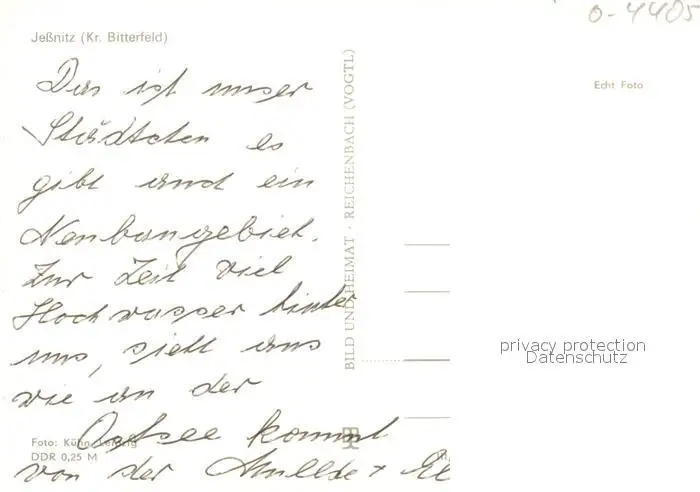 o-4405
Jeßnitz (Kr. Bitterfeld)
Echt Foto
Das ist unser
Städtchen es
gibt auch ein
Neubaugebiet.
Zur Zeit viel
Hochwasser hinter
uns, sieht aus
wie an der
Ostsee kommt
von der Mullde +
BILD UND HEIMAT · REICHENBACH (VOGTL)
privacy protection
Datenschutz
Foto: Kühn, Leipzig
DDR 0,25 M